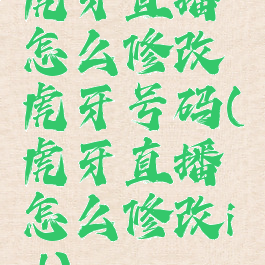 虎牙直播
怎么修改
虎牙号码(
虎牙直播
怎么修改i